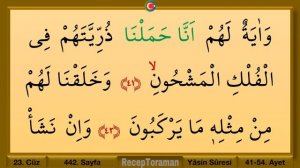 وَاٰيَةٌ لَهُمْ اَنَّا حَمَلْنَا ذُرِّيَّتَهُمْ فِى
الْفُلْكِ الْمَشْحُونِۙ ﴿٤١﴾ وَخَلَقْنَا لَهُمْ
مِنْ مِثْلِهٖ مَا يَرْكَبُونَ ﴿٤٢﴾ وَاِنْ نَشَأْ
23. Cüz 442. Sayfa RecepToraman Yâsin Sûresi 41-54. Ayet